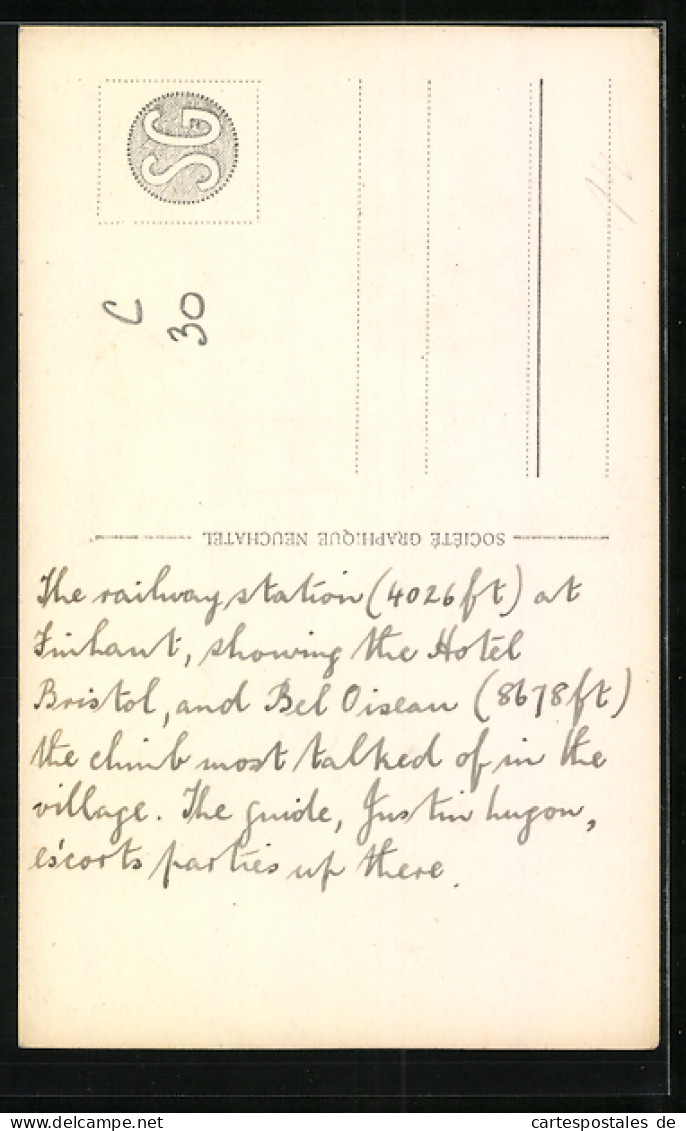 SG
C
30
SOCIÉTÉ GRAPHIQUE NEUCHATEL
The railway station (4026 ft) at
Finhaut, showing the Hotel
Bristol, and Bel Oiseau (8678 ft)
the climb most talked of in the
village. The guide, Justin Lugon,
escorts parties up there.
cartespostales de